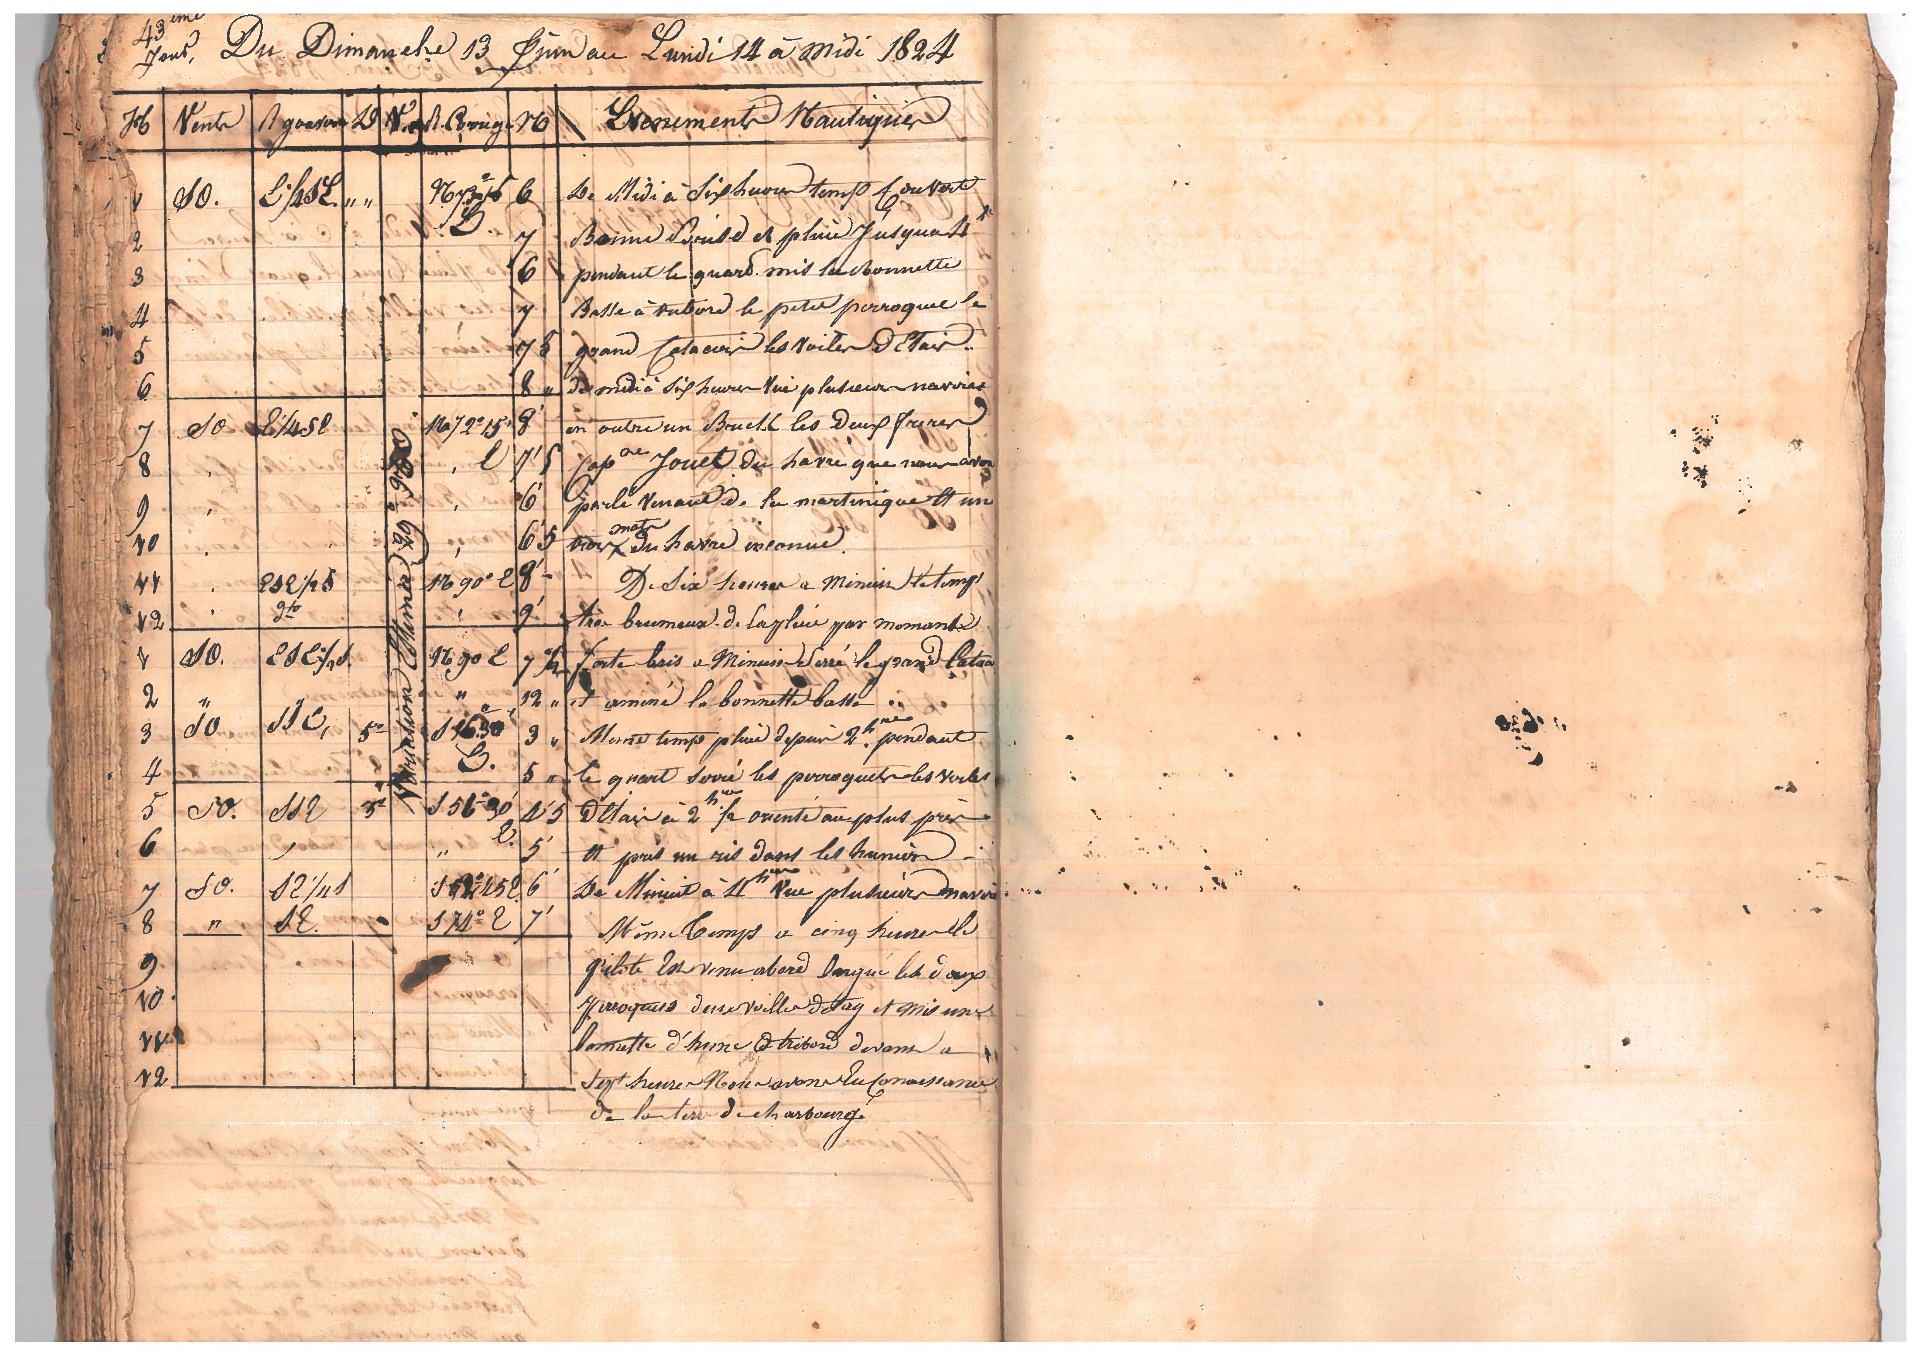 43 eme
Jour, Du Dimanche 13 Juin au Lundi 14 à Midi 1824
H Vents R gouverné D V. R. Corrigé M Evenements Nautiques
1 SO. E 1/4 SE. " " N 73° 15 6 De Midi à Six heures temps Couvert
E.
2 7 Bonne Brise et pluie Jusqua 4 re
3 6 pendant le quard mis la Bonnette
4 7 Basse à tribord le petit perroquet le
5 7 5 grand Catacoir les Voiles d'Etais
6 8 " de midi à Six heures Vue plusieurs navires
7 SO E 1/4 SE N 72° 15' 8' en outre un Brick les Deux freres
8 , , E 7' 5 Cap ne Jouet du havre que nous avons
9 , , 6' parlé Venant de la martinique Et un
mats
10 , , 6' 5 trois du havre inconnu.
11 , ESE 1/2 S N 90° E 8' - De Six heures a Minuit le temps
12 , do , 9' très brumeux de la pluie par momants
1 SO. ESE 1/2 S. N 90 E 7 1/2 forte bris a Minuit Serré le grand Catacoi
2 " " 12 " et amené la bonnette basse
3 SO SSE, 5° S 56° 30' 3 " Meme temps pluie depuis 2 h res pendant
E.
4 5 " le quart serré les perroquets les voiles
5 SO. SSE 5° S 56° 30' 4' 5 D'Etais à 2 h res 1/2 orienté au plus près
E.
6 , " 5' Et pris un ris dans les huniers
7 SO. SE 1/4 S S 62° 45 E 6' De Minuit à 4 h res Vue plusieurs navir
8 " SE. S 74° E 7' Même Temps a cinq heures le
9 pilote Est venu abord largué les deux
10 perroquets deux voilles detay et mis une
11 bonnette d'hune tribord devant a
12 Sept heures Nous avons Eu Conaissance
de la terre de charbourg
Variation Estimée 29° 26' NO